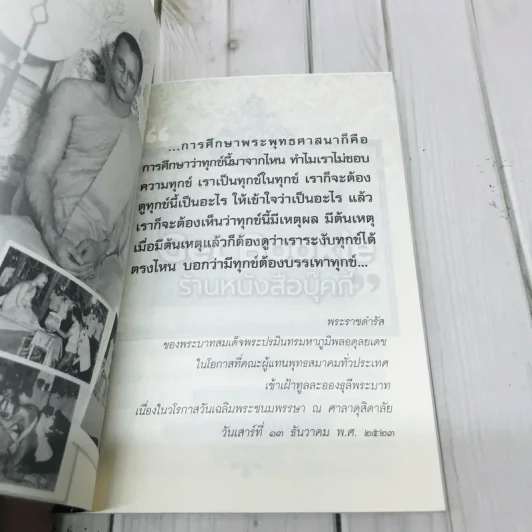 ...การศึกษาพระพุทธศาสนาก็คือ
การศึกษาว่าทุกข์นี้มาจากไหน ทำไมเราไม่ชอบ
ความทุกข์ เราเป็นทุกข์ในทุกข์ เราก็จะต้อง
ดูทุกข์นี้เป็นอะไร ให้เข้าใจว่าเป็นอะไร แล้ว
เราก็จะต้องเห็นว่าทุกข์นี้มีเหตุผล มีต้นเหตุ
เมื่อมีต้นเหตุแล้วก็ต้องดูว่าเราระงับทุกข์ได้
ตรงไหน บอกว่ามีทุกข์ต้องบรรเทาทุกข์...
ร้านหนังสือบุ๊คกี้
พระราชดำรัส
ของพระบาทสมเด็จพระปรมินทรมหาภูมิพลอดุลยเดช
ในโอกาสที่คณะผู้แทนพุทธสมาคมทั่วประเทศ
เข้าเฝ้าทูลละอองธุลีพระบาท
เนื่องในวโรกาสวันเฉลิมพระชนมพรรษา ณ ศาลาดุสิดาลัย
วันเสาร์ที่ ๑๓ ธันวาคม พ.ศ. ๒๕๒๓